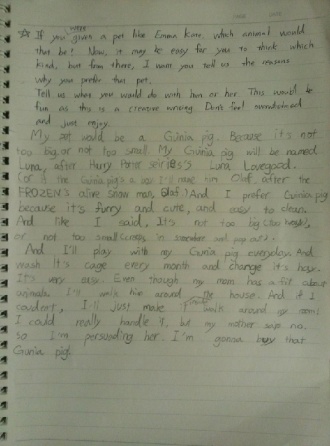 ☆ If you were given a pet like Emma Kate, which animal would
that be? Now, it may be easy for you to think which
kind, but from there, I want you tell us the reasons
why you prefer that pet.
Tell us what you would do with him or her. This would be
fun as this is a creative writing. Don't feel overwhelmed
and just enjoy.
My pet would be a Guinia pig. Because it's not
too big or not too small. My Guinia pig will be named
Luna, after Harry Potter series's Luna Lovegood.
(Or if the Guinia pig's a boy I'll name him Olaf after the
FROZEN's alive snow man, Olaf.) And I prefer Guinia pig
because it's furry and cute, and easy to clean.
And like I said, It's not too big
or not too small
And I'll play with my Guinia pig everyday. And
wash it's cage every month and change it's hay.
It's very easy. Even though my mom has a fit about
animals. I'll walk him around the house. And if I
couldn't, I'll just make around my room!
I could really handle it, but my mother says no.
So I'm persuading her. I'm gonna buy that
Guinia pig!